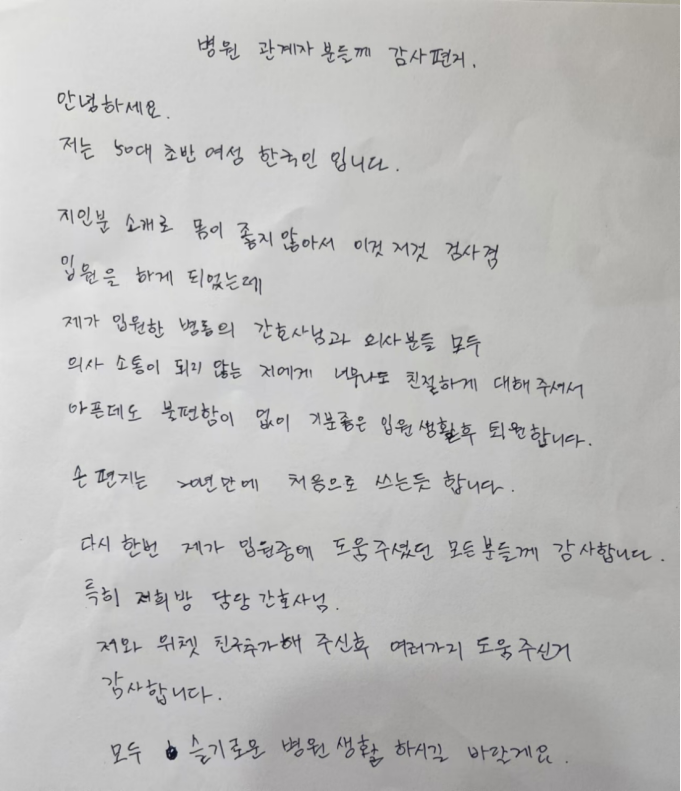 병원 관계자분들께 감사편지.
안녕하세요.
저는 50대 초반 여성 한국인 입니다.
지인분 소개로 몸이 좋지 않아서 이것 저것 검사겸
입원을 하게 되었는데
제가 입원한 병동의 간호사님과 의사분들 모두
의사 소통이 되지 않는 저에게 너무나도 친절하게 대해 주셔서
아픈데도 불편함이 없이 기분좋은 입원생활후 퇴원합니다.
손 편지는 20년만에 처음으로 쓰는듯 합니다.
다시 한번 제가 입원중에 도움주셨던 모든분들께 감사합니다.
특히 저희방 담당 간호사님.
저와 위쳇 친구추가해 주신후 여러가지 도움 주신거
감사합니다.
모두 슬기로운 병원 생활 하시길 바랄게요.